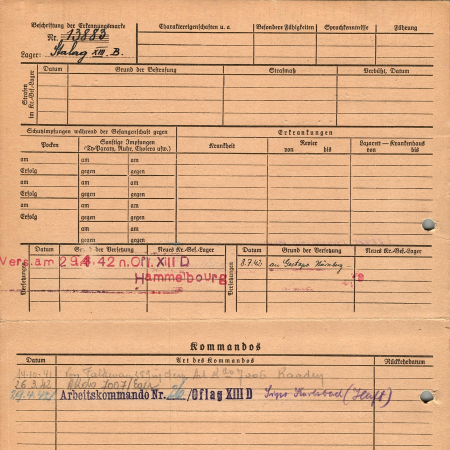 Beschriftung der Erkennungsmarke
Nr. 13883
Lager: Stalag XIII. B.
Charaktereigenschaften u. a
Besondere Fähigkeiten
Sprachkenntnisse
Führung
Strafen im Kr.-Gef.-Lager
Datum
Grund der Bestrafung
Strafmaß
Verbüßt, Datum
Schutzimpfungen während der Gefangenschaft gegen
Erkrankungen
Pocken
Sonstige Impfungen
(Ty-Paraty, Ruhr, Cholera usw.)
Krankheit
Revier
von bis
Lazarett — Krankenhaus
von bis
am am am
Erfolg gegen gegen
am am am
Erfolg gegen gegen
am am am
Erfolg gegen gegen
am am am
gegen gegen
Versetzungen
Datum
Grund der Versetzung
Neues Kr.-Gef.-Lager
Versetzungen
Datum
Grund der Versetzung
Neues Kr.-Gef.-Lager
Vers. am 29.4.42 n. Ofl. XIII D
Hammelbourg
8.7.42 an Gestapo Nürnberg
Kommandos
Datum
Art des Kommandos
Rückkehrdatum
14.10.41
26.3.42 7007/Eger
29.4.42 Arbeitskommando Nr. / Oflag XIII D Karlsbad (Haft)